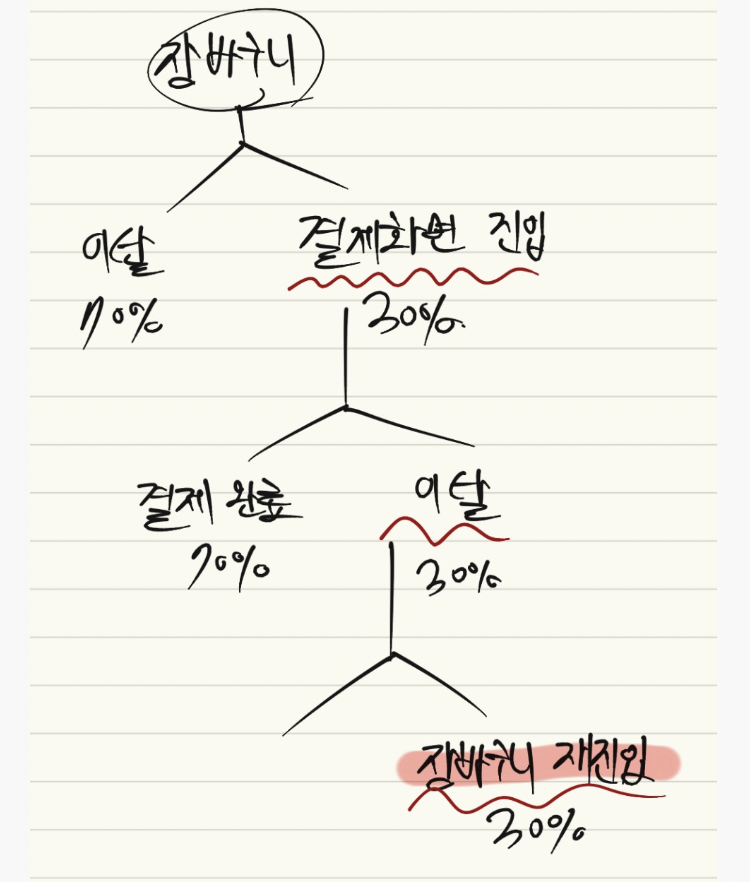 장바구니
이탈
결제화면 진입
70%
30%
결제 완료
이탈
70%
30%
장바구니 재진입
30%